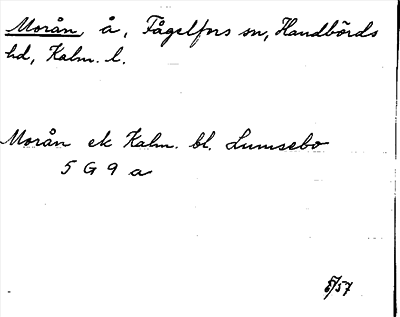 Morån, å, Fågelfors sn, Handbörds
hd, Kalm. l.
Morån ek Kalm. bl. Lumsebo
5 G 9 a
5/57